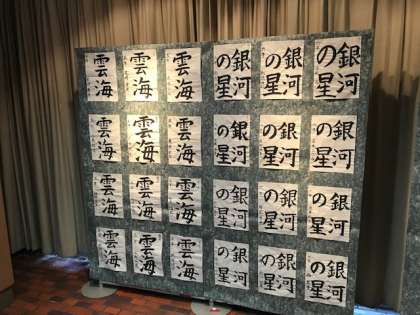 雲海
雲海
雲海
銀河
の星
銀河
の星
銀河
の星
雲海
雲海
雲海
銀河
の星
銀河
の星
銀河
の星
雲海
雲海
雲海
銀河
の星
銀河
の星
銀河
の星
雲海
雲海
雲海
銀河
の星
銀河
の星
銀河
の星